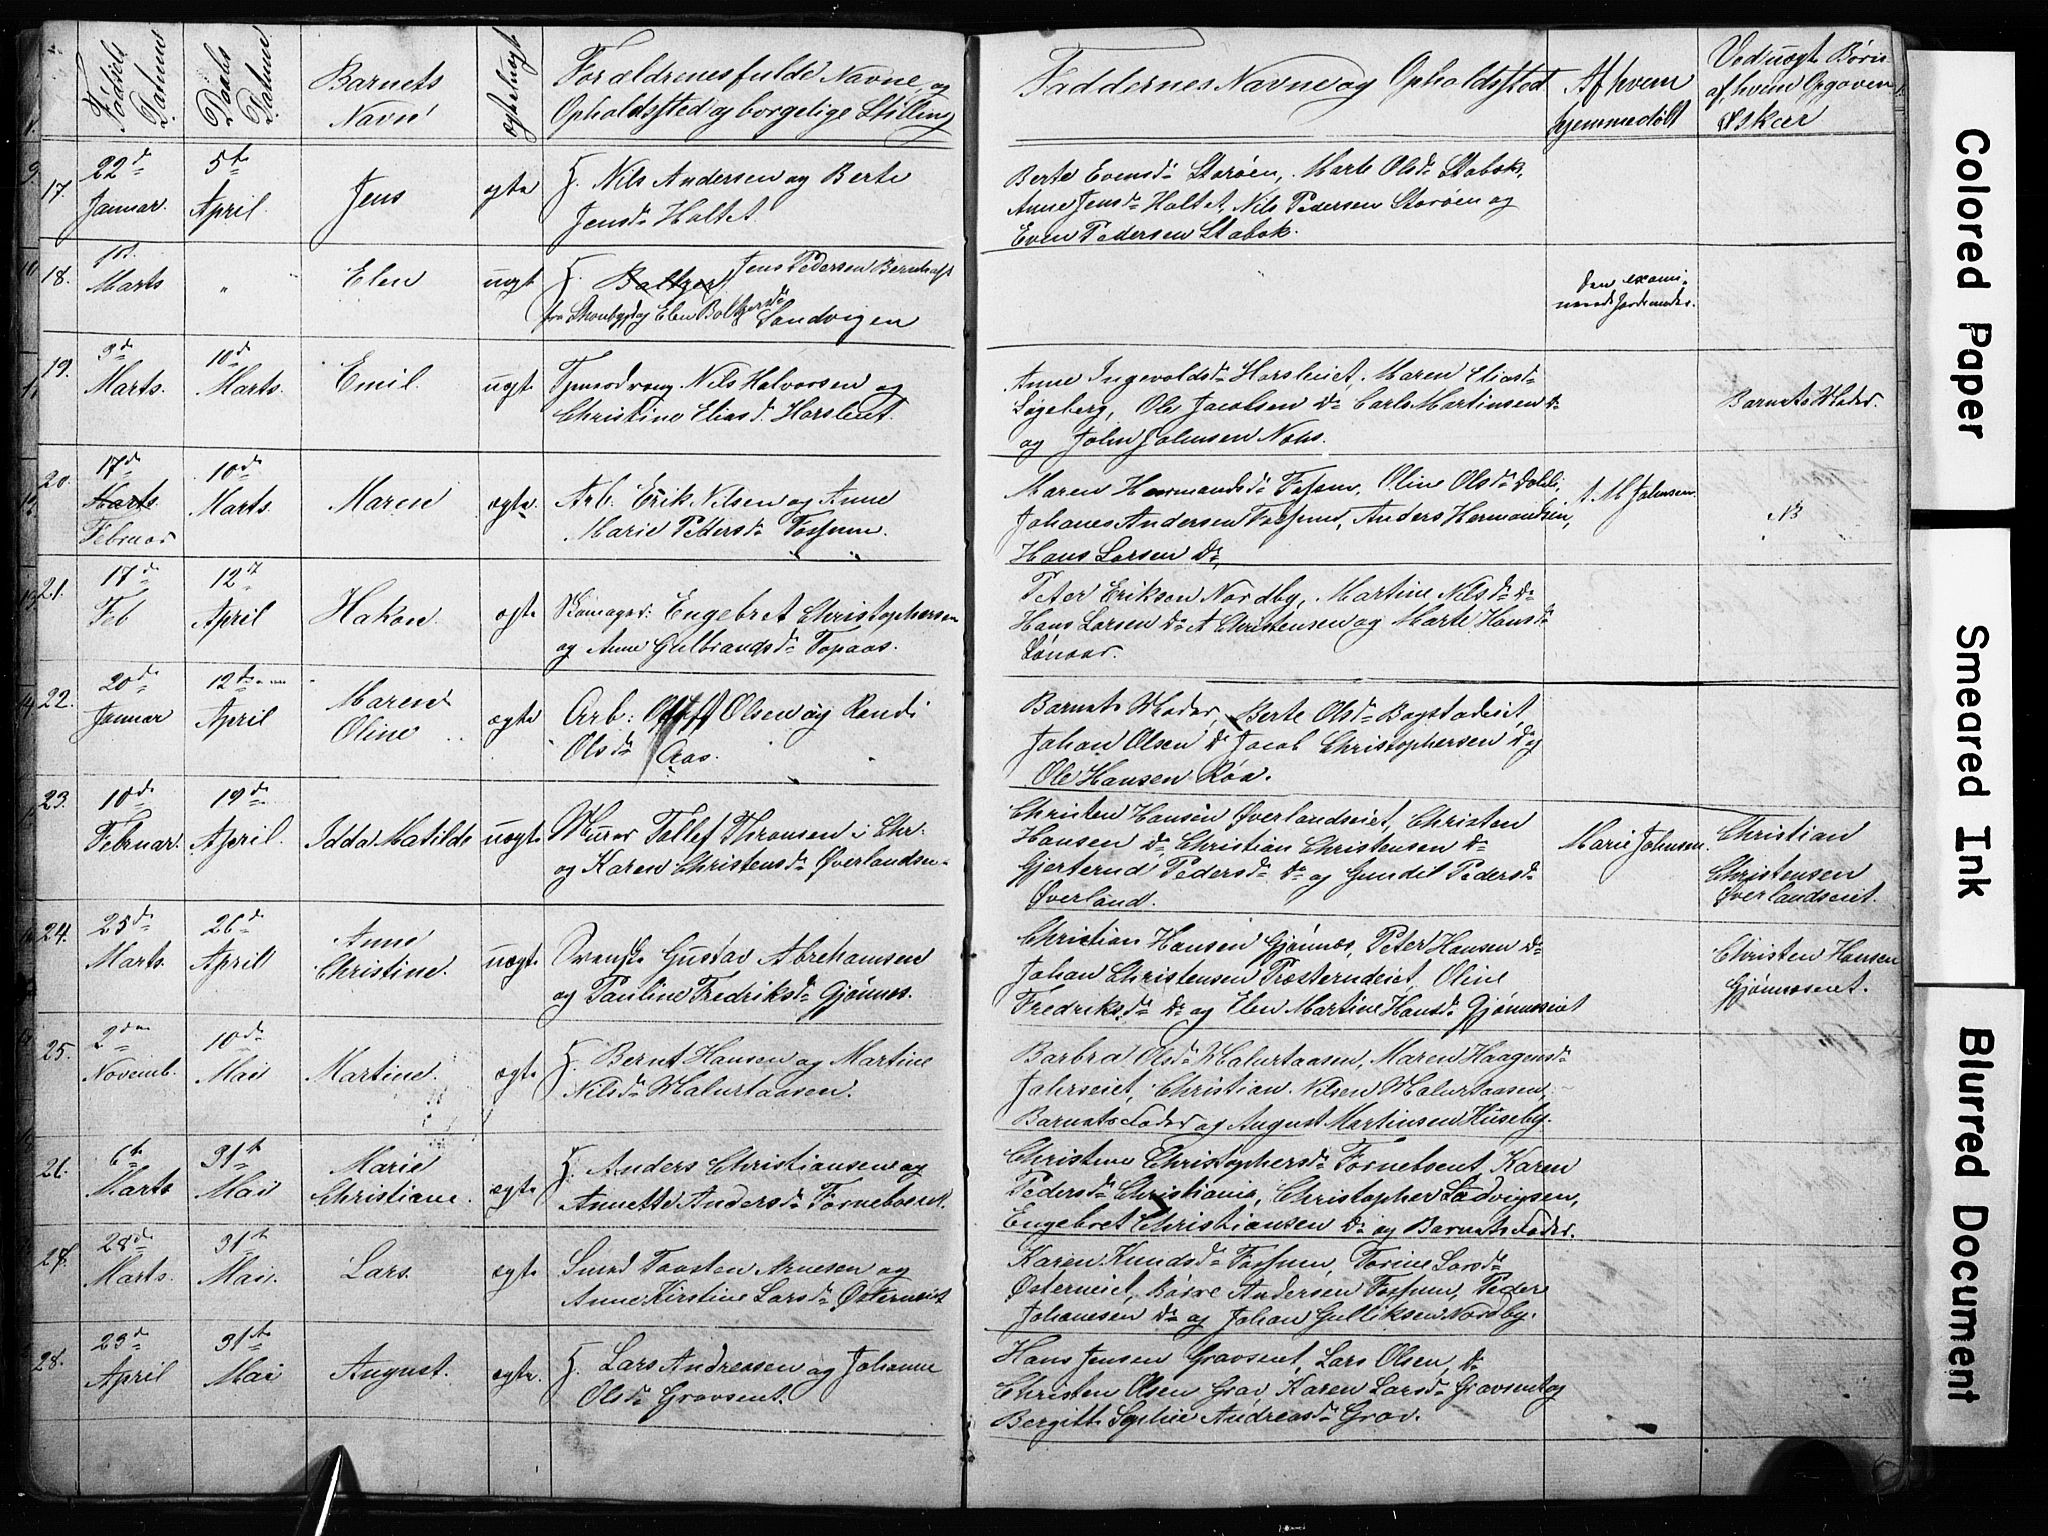 Fødsels Datum
Daabs Datum
Barnets Navn
ægte/uægt
Forældrenes fulde Navne, og
Opholdssted og borgelige Stilling
Faddernes Navne og Opholdssted
Af hvem
hjemmedøbt
Ved uægt Børn
af hvem Opgaven
skeer
17.
22d Januar.
5t April.
Jens
ægte
G. Nils Andersen og Berte
Jensd. Haltet.
Berte Evensd. Storøen, Marte Olsd. Stabæk.
Anne Jensd. Haltet, Nils Pedersen Storøen og
Even Pedersen Stabæk.
18.
1st Marts
"
Elen
uægt
G. Jens Pedersen
fra og Elen Boltzersd. Sandvigen
den exami-
nerede Jordemoder.
19.
9d Marts.
10d Marts.
Emil.
uægt
Tjenesdreng Nils Halvorsen og
Christine Eliasd. Horsleiet.
Anne Ingevoldsd. Horsleiet, Maren Eliasd.
Løgeberg, Ole Jacobsen do Carl Martinsen do
og John Johnsen Næss.
Barnets Moder.
20.
17d Marts Februar
10d Marts.
Maren
ægte.
Arb. Erik Nilsen og Anne
Marie Pedersd. Fossum.
Maren Hermandsd. Fossum, Oline Olsd. Dæhli,
Johanes Andersen Fossum, Anders Hermandsen,
Hans Larsen do,
A. M Johnsen.
NB
21.
17d Feb
12t April
Hakon.
ægte
Engebret Christophersen
og Anne Gulbrandsd. Topaas.
Peter Eriksen Nordby, Martine Nilsd. do
Hans Larsen do A Christensen og Marte Hansd.
22.
20d Januar
12d April
Maren
Oline
ægte
Arb: Olsen og Randi
Olsd. Aas.
Barnets Moder, Berte Olsd. Bagstadeiet,
Johan Olsen do Jacob Christophersen do og
Ole Hansen Røa.
23.
10d Februar.
19d April.
Idda Matilde
uægte
Murer Tellef Thronsen i Chr.
og Karen Christensd. Øverlandsei.
Christen Hansen Øverlandseiet, Christen
Hansen do Christian Christensen do
Gjerterud Pedersd. do og Gundil Pedersd.
Øverland.
Marie Johnsen.
Christian
Christensen
Øverlandseiet.
24.
25d Marts.
26d April
Anne
Christine.
uægte
Svensk Gustav Abrehamsen
og Pauline Fredriksd. Gjønnes.
Christian Hansen Gjønnes, Peter Hansen do
Johan Christensen Præsterudeiet, Oline
Fredriksd. do og Elen Martine Hansd. Gjønneseiet
Christen Hansen
Gjønneseiet.
25.
2den Novemb.
10d Mai
Martine.
ægte
G. Bernt Hansen og Martine
Nilsd. Malurtaasen.
Barbra Olsd. Malurtaasen, Maren Haagensd.
Jahrseiet, Christian Nilsen Malurtaasen,
Barnets Fader og August Martinsen Huseby.
26.
6t Marts
31t Mai
Marie
Christiane.
ægte
G. Anders Christiansen og
Annette Andersd. Forneboeiet.
Christine Christophersd. Fornebeeiet, Karen
Pedersd. Christiania, Christopher Ludvigsen,
Engebret Christiansen do og Barnets Fader.
27.
28d Marts.
31t Mai.
Lars.
ægte
Smed Taasten Arnesen og
Anne Kirstine Larsd. Østerneiet
Karen Knudsd. Fossum, Torine Larsd.
Østerneiet, Børre Andersen Fossum, Peder
Johanesen do og Johan Gulliksen Nordby.
28.
23d April
31t Mai
August.
ægte.
G. Lars Andreasen og Johanne
Olsd. Gravseiet.
Hans Jensen Gravseiet, Lars Olsen, do
Christen Olsen Grav, Karen Larsd. Gravseiet og
Bergitte Sophie Andreasd. Grav.
Colored Paper
Smeared Ink
Blurred Document